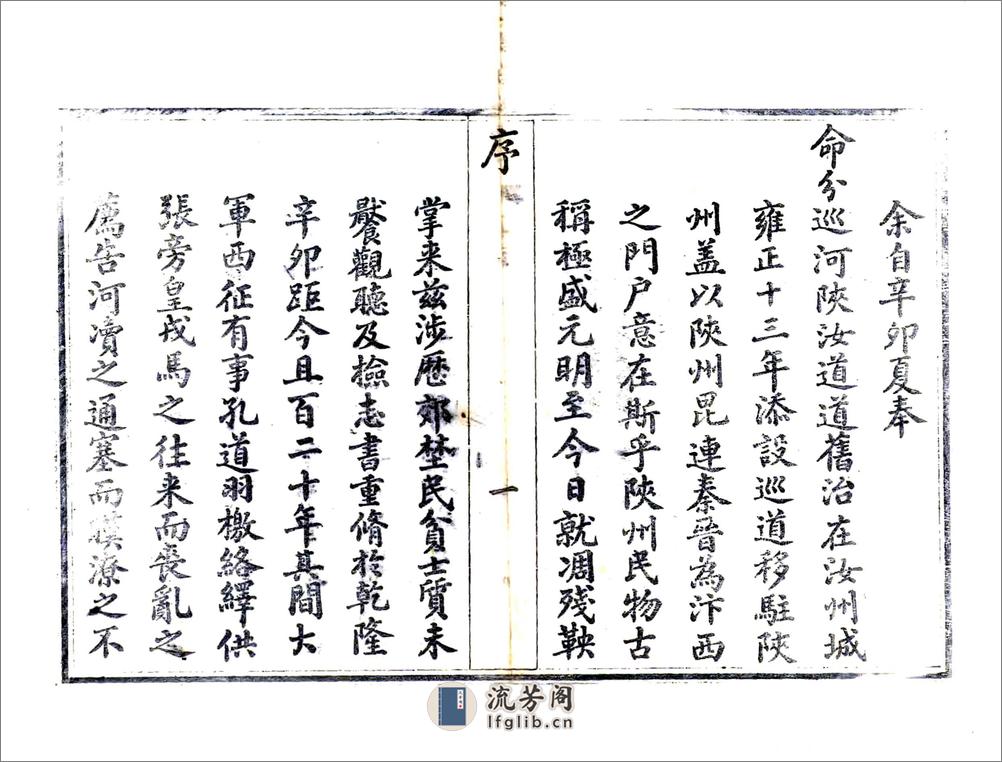 余自辛卯夏奉
命分巡河陝汝道道舊治在汝州城
雍正十三年添設巡道移駐陝
州盖以陝州毘連秦晉為汴西
之門戶意在斯乎陝州民物古
稱極盛元明至今日就凋殘鞅
序
一
掌来兹涉歷郊埜民貧士質未
饜觀聽及撿志書重脩於乾隆
辛卯距今且百二十年其間大
軍西征有事孔道羽檄絡繹供
張旁皇戎馬之往来而喪亂之
薦告河瀆之通塞而潦之不
流芳阁
lfglib.cn